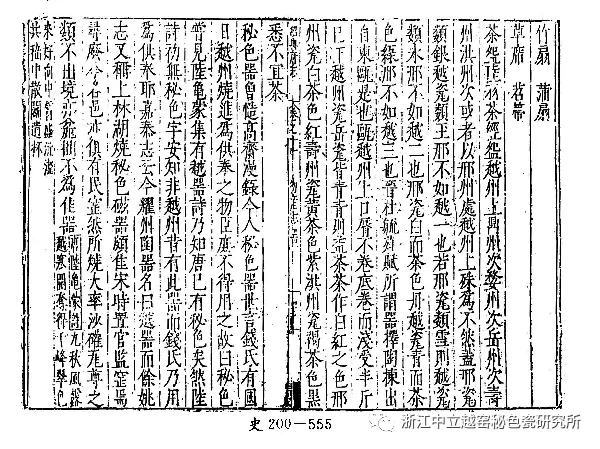 竹扇 蒲扇
草席 苕帚
茶 陸羽茶經 越州上鼎州次婺州次岳州次壽
州洪州次或者以邢州處越州上殊為不然盖邢
類銀越瓷類玉邢不如越一也若邢瓷類雪則越
類氷邢不如越二也邢瓷白而茶色丹越瓷青而茶
色緑邢不如越三也晉杜毓荈賦所謂器擇陶揀出
自東甌甌越也甌越州上口唇不卷底卷而淺受半斤
已下越州瓷岳瓷皆青青則益茶茶作白紅之色邢
州瓷白茶色紅壽州瓷黃茶色紫洪州瓷褐茶色黑
悉不宜茶
秘色器曾慥高齋漫録今人秘色器世言錢氏有國
日越州燒進為供奉之物臣庶不得用之故曰秘色
嘗見陸龜蒙集有越器詩乃知唐已有秘色矣然陸
詩初無秘色字安知非越州昔有此器而錢氏乃用
為供奉耶嘉泰志云今耀州陶器名曰越器而餘姚
志又稱上林湖燒秘色磁器頗佳宋時置官監窰焉
尋廢今 邑亦俱有民窰然所燒大率沙礶瓦尊之
類不出境亦麄拙不為佳器 陸龜蒙詩九秋風露
越窰開奪得千峰翠色
來好向中宵盛沆瀣
共嵇中散鬬遺杯
史 200—555
浙江中立越窑秘色瓷研究所